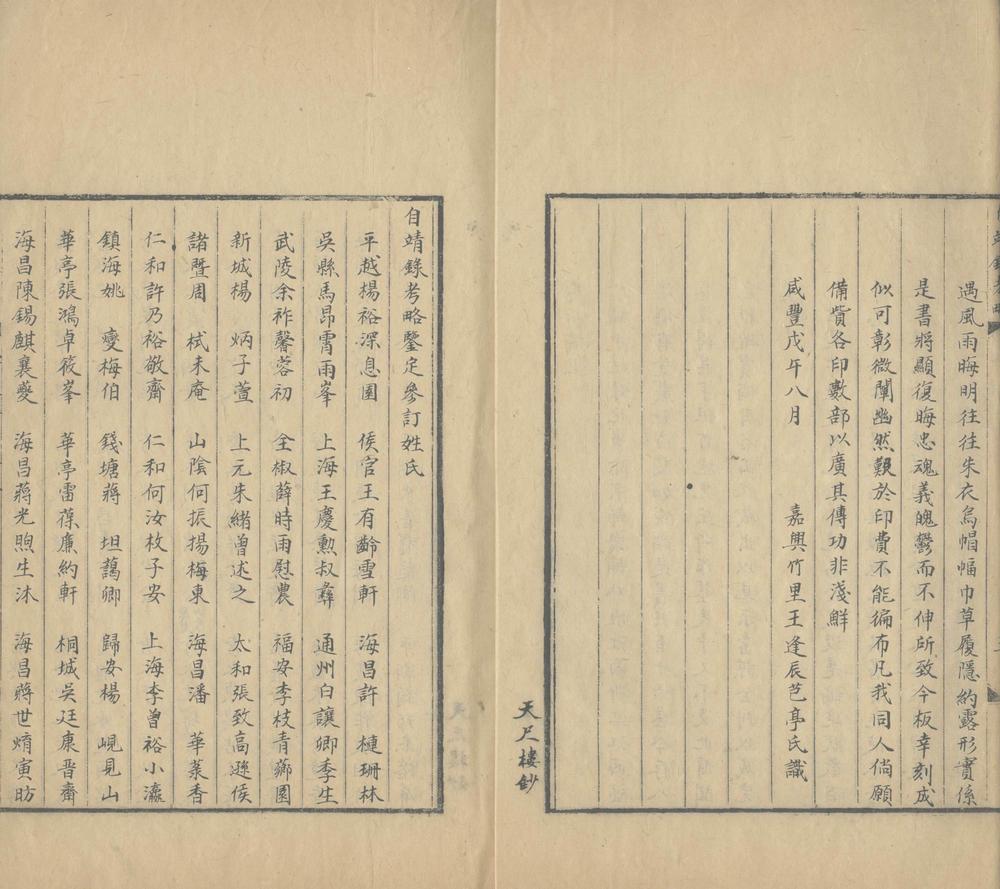 遇風雨晦明往往朱衣烏帽幅巾草履隱約露形實係
是書將顯復晦忠魂義魄鬱而不伸所致今板幸刻成
似可彰微闡幽然艱於印費不能徧布凡我同人倘願
備貲各印數部以廣其傳功非淺鮮
咸豐戊午八月 嘉興竹里王逢辰芑亭氏識
天尺樓鈔
自靖錄考略鑒定參訂姓氏
平越楊裕深息園 侯官王有齡雪軒 海昌許 槤珊林
吳縣馬昂霄雨峯 上海王慶勳叔彝 通州白讓卿季生
武陵余祚馨蓉初 全椒薛時雨慰農 福安李枝青薌園
新城楊 炳子萱 上元朱緒曾述之 太和張致高遜侯
諸暨周 栻未庵 山陰何振揚梅東 海昌潘 華菜香
仁和許乃裕敬齋 仁和何汝枚子安 上海李曾裕小瀛
鎮海姚 燮梅伯 錢塘蔣 坦藹卿 歸安楊 峴見山
華亭張鴻卓筱峯 華亭雷葆廉約軒 桐城吳廷康晉齋
海昌陳錫麒襄夔 海昌蔣光煦生沐 海昌蔣世堉寅昉